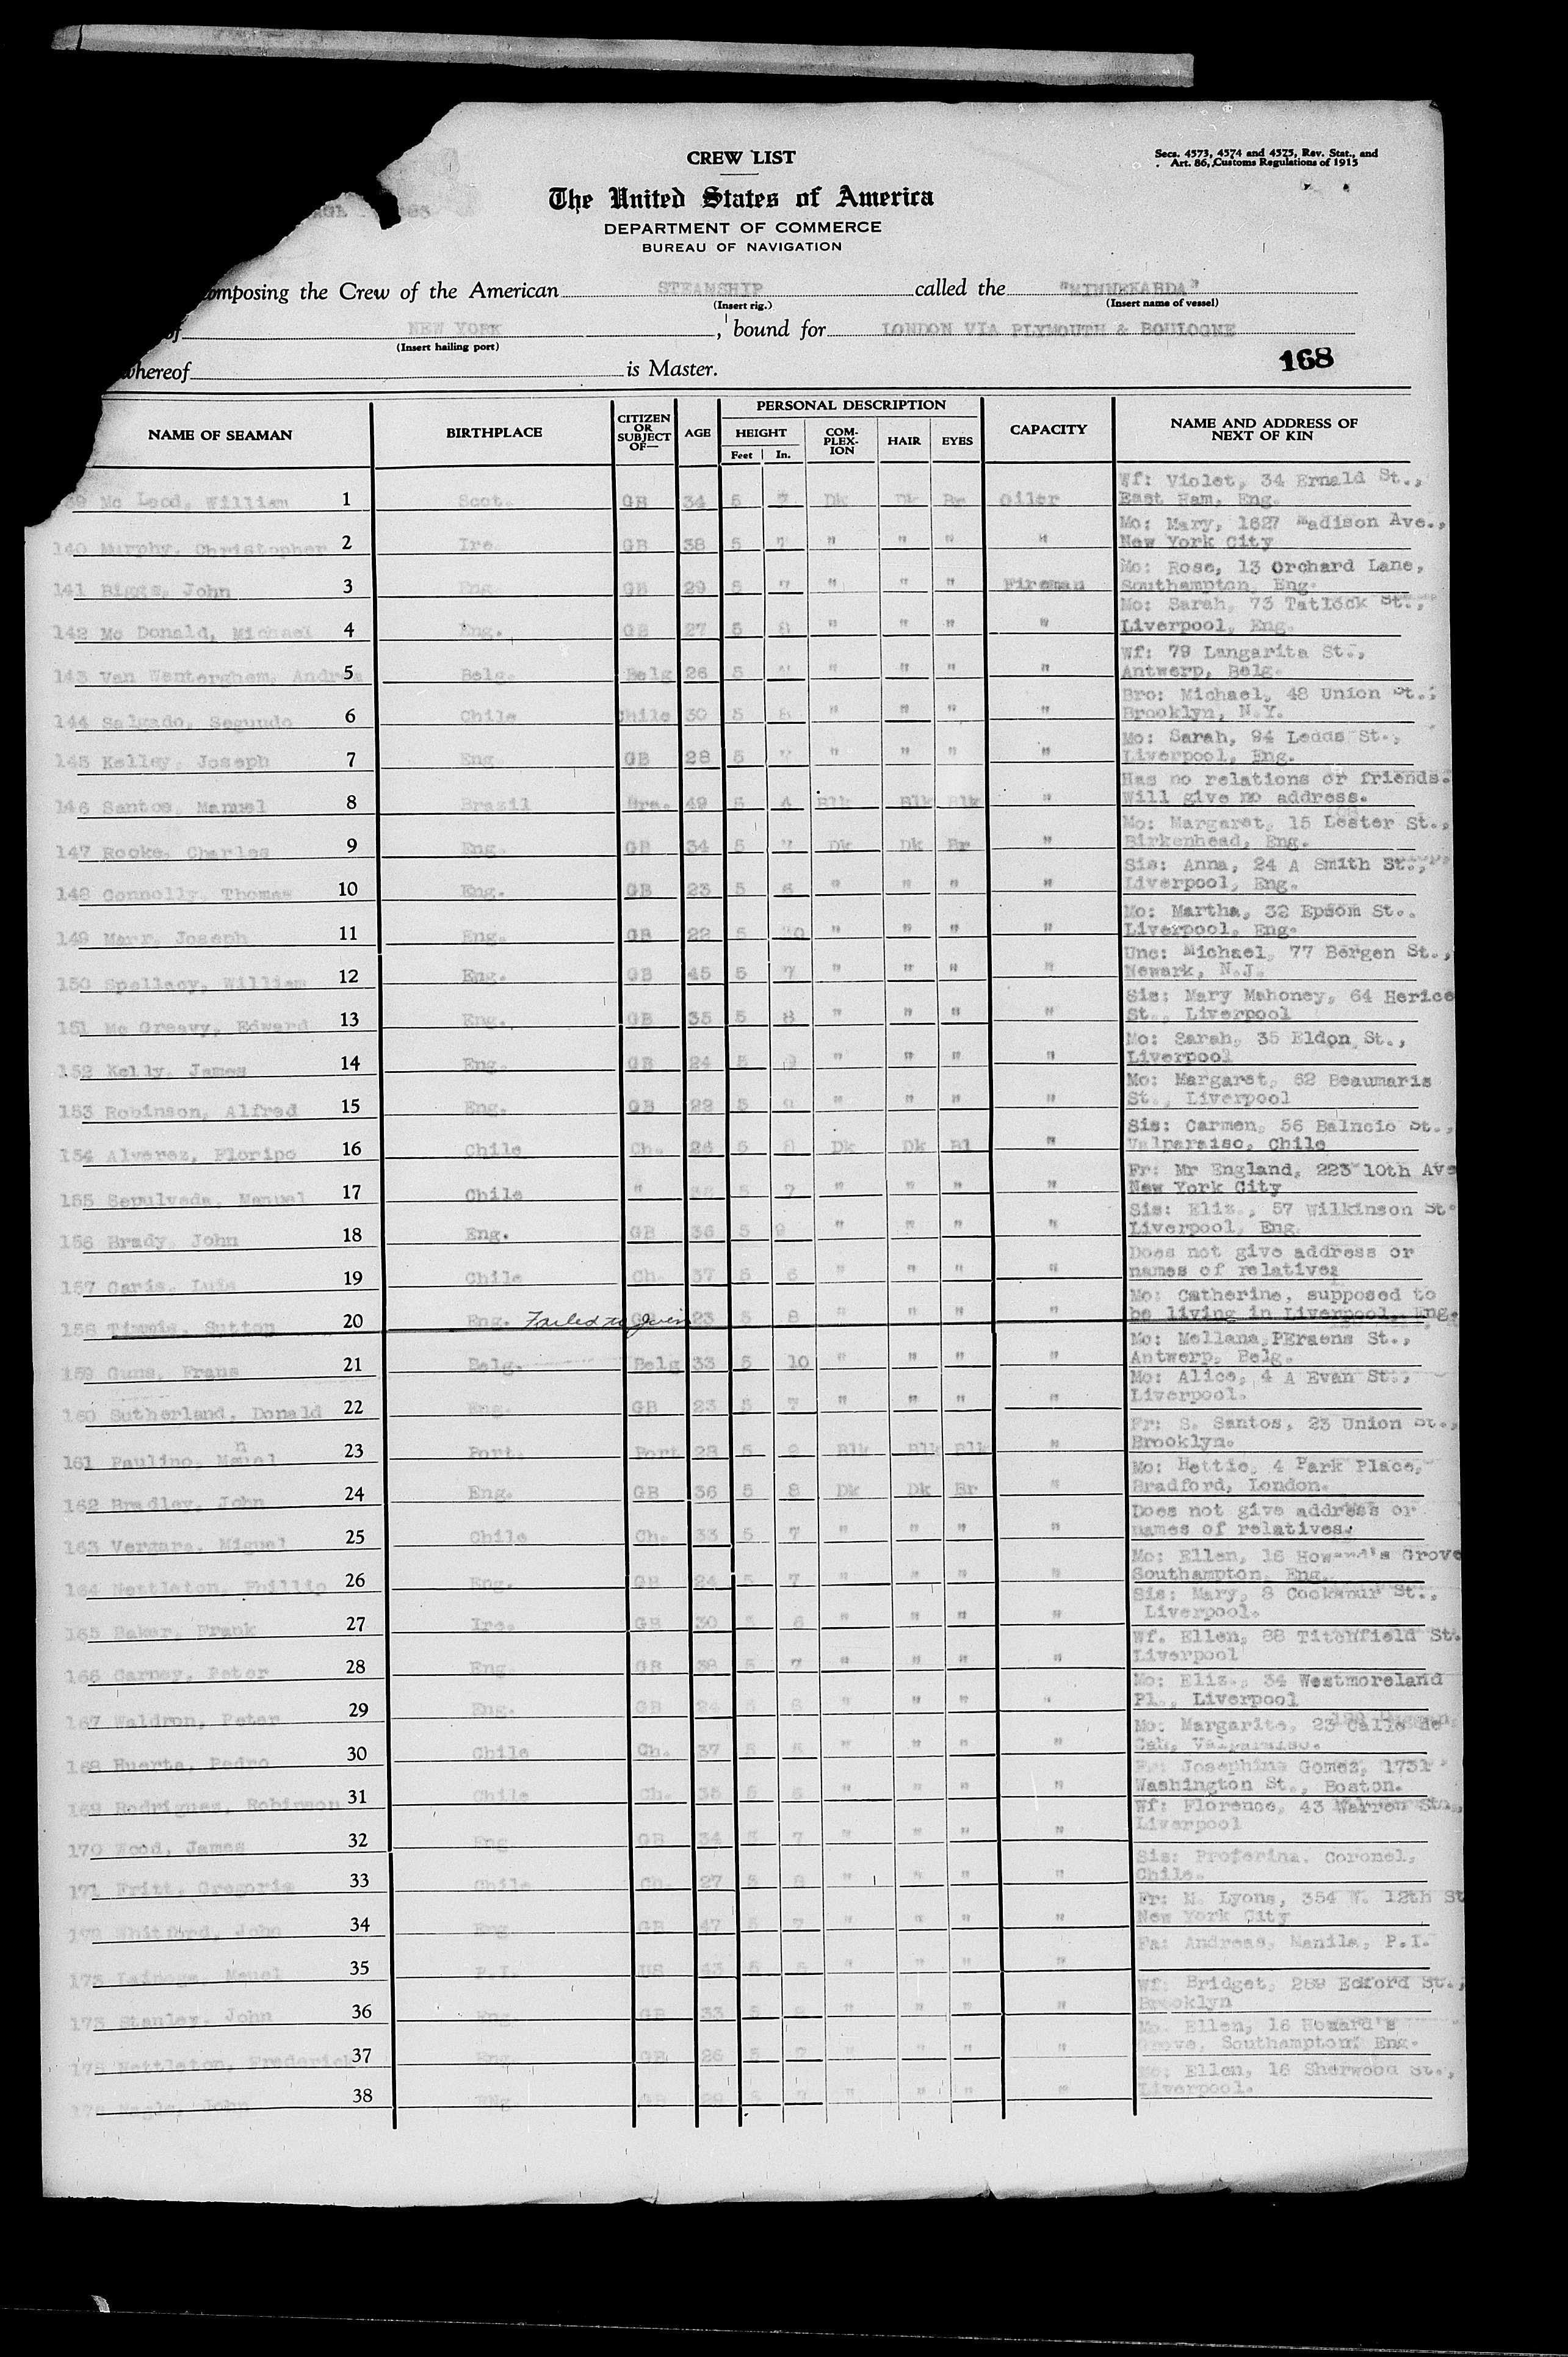 CREW LIST
Secs. 4573, 4574 and 4575, Rev. Stat., and
Art. 86, Customs Regulations of 1915
The United States of America
DEPARTMENT OF COMMERCE
BUREAU OF NAVIGATION
composing the Crew of the American STEAMSHIP called the "MINNEKAHDA"
(Insert rig.) (Insert name of vessel)
of NEW YORK, bound for LONDON VIA PLYMOUTH & BOULOGNE
(Insert hailing port)
168
whereof is Master.
NAME OF SEAMAN BIRTHPLACE CITIZEN OR SUBJECT OF— AGE PERSONAL DESCRIPTION HEIGHT Feet In. COM-PLEX-ION HAIR EYES CAPACITY NAME AND ADDRESS OF NEXT OF KIN
Mc Leod, William 1 Scot. GB 34 5 7 Dk Dk Br Oiler Wf: Violet, 34 Ernald St., East Ham, Eng.
140 Murphy, Christopher 2 Ire. GB 38 5 7 " " " " Mo: Mary, 1627 Madison Ave., New York City
141 Biggs, John 3 Eng GB 29 5 7 " " " Fireman Mo: Rose, 13 Orchard Lane, Southampton, Eng.
142 Mc Donald, Michael 4 Eng. GB 27 5 8 " " " " Mo: Sarah, 73 Tatlock St., Liverpool, Eng.
143 Van Wanterghem, 5 Belg. Belg 26 5 " " " " Wf: 79 Langarita St., Antwerp, Belg.
144 Salgado, Segundo 6 Chile Chile 30 5 8 " " " " Bro: Michael, 48 Union St., Brooklyn, N.Y.
145 Kelley, Joseph 7 Eng GB 28 5 7 " " " " Mo: Sarah, 94 Leads St., Liverpool, Eng.
146 Santos, Manuel 8 Brazil Bra. 49 5 4 Blk Blk Blk " Has no relations or friends. Will give no address.
147 Rooke, Charles 9 Eng. GB 34 5 7 Dk Dk Br " Mo: Margaret, 15 Lester St., Birkenhead, Eng.
148 Connolly, Thomas 10 Eng. GB 23 5 6 " " " " Sis: Anna, 24 A Smith St., Liverpool, Eng.
149 Marr, Joseph 11 Eng. GB 22 5 10 " " " " Mo: Martha, 32 Epsom St.. Liverpool, Eng.
150 Spellacy, William 12 Eng. GB 45 5 7 " " " " Unc: Michael, 77 Bergen St., Newark, N.J.
151 Mc Greavy, Edward 13 Eng. GB 35 5 8 " " " " Sis: Mary Mahoney, 64 Herice St., Liverpool
152 Kelly, James 14 Eng. GB 24 5 9 " " " " Mo: Sarah, 35 Eldon St., Liverpool
153 Robinson, Alfred 15 Eng. GB 22 5 9 " " " " Mo: Margaret, 62 Beaumaris St., Liverpool
154 Alverez, Floripo 16 Chile Ch. 26 5 8 Dk Dk Bl " Sis: Carmen, 56 Balncio St., Valparaiso, Chile
155 Sepulveda, Manuel 17 Chile " 5 7 " " " " Fr: Mr England, 223 10th Ave New York City
156 Brady, John 18 Eng. GB 36 5 9 " " " " Sis: Eliz., 57 Wilkinson St. Liverpool, Eng.
157 Caris, Luis 19 Chile Ch. 37 5 6 " " " " Does not give address or names of relatives
158 Timmis, Sutton 20 Eng. Failed to join GB 23 5 8 " " " " Mo: Catherine, supposed to be living in Liverpool, Eng.
159 Guns, Frans 21 Belg. Belg 33 5 10 " " " " Mo: Mellana, PEraens St., Antwerp, Belg.
160 Sutherland, Donald 22 Eng. GB 23 5 7 " " " " Mo: Alice, 4 A Evan St., Liverpool.
161 Paulino, Manuel 23 Port. Port 28 5 Blk Blk Blk " Fr: S. Santos, 23 Union St., Brooklyn.
162 Bradley, John 24 Eng. GB 36 5 8 Dk Dk Br " Mo: Hettie, 4 Park Place, Bradford, London.
163 Vergara, Miguel 25 Chile Ch. 33 5 7 " " " " Does not give address or names of relatives.
164 Nettleton, Phillip 26 Eng. GB 24 5 7 " " " " Mo: Ellen, 16 Howard's Grove Southampton, Eng.
165 Baker, Frank 27 Ire. GB 30 5 6 " " " " Sis: Mary, 8 St., Liverpool.
166 Carney, Peter 28 Eng. GB 38 5 7 " " " " Wf. Ellen, 88 Titchfield St. Liverpool
167 Waldron, Peter 29 Eng. GB 24 5 8 " " " " Mo: Eliz., 34 Westmoreland Pl., Liverpool
168 Huerta, Pedro 30 Chile Ch. 37 5 " " " " Mo: Margarite, 23 Calle de Valparaiso.
169 Rodriguez, Robinson 31 Chile Ch. 35 5 " " " " Fr: Josephine Gomez, 1731 Washington St., Boston.
170 Wood, James 32 Eng GB 34 5 7 " " " " Wf: Florence, 43 Warren St., Liverpool
171 Fritt, Gregoris 33 Chile Ch. 27 5 8 " " " " Sis: Proferina, Coronel, Chile.
172 Whitford, John 34 Eng GB 47 5 7 " " " " Fr: N. Lyons, 354 W. 12th St New York City
173 35 P.I. US 43 5 5 " " " " Fa: Andreas, Manila, P.I.
173 Stanley, John 36 Eng. GB 33 5 8 " " " " Wf: Bridget, 289 Eckford St., Brooklyn
175 Nettleton, Frederick 37 Eng. GB 26 5 7 " " " " Mo. Ellen, 16 Howard's Grove, Southampton, Eng.
Nagle, John 38 Eng. GB 5 " " " " Mo: Ellen, 16 Sherwood St., Liverpool.